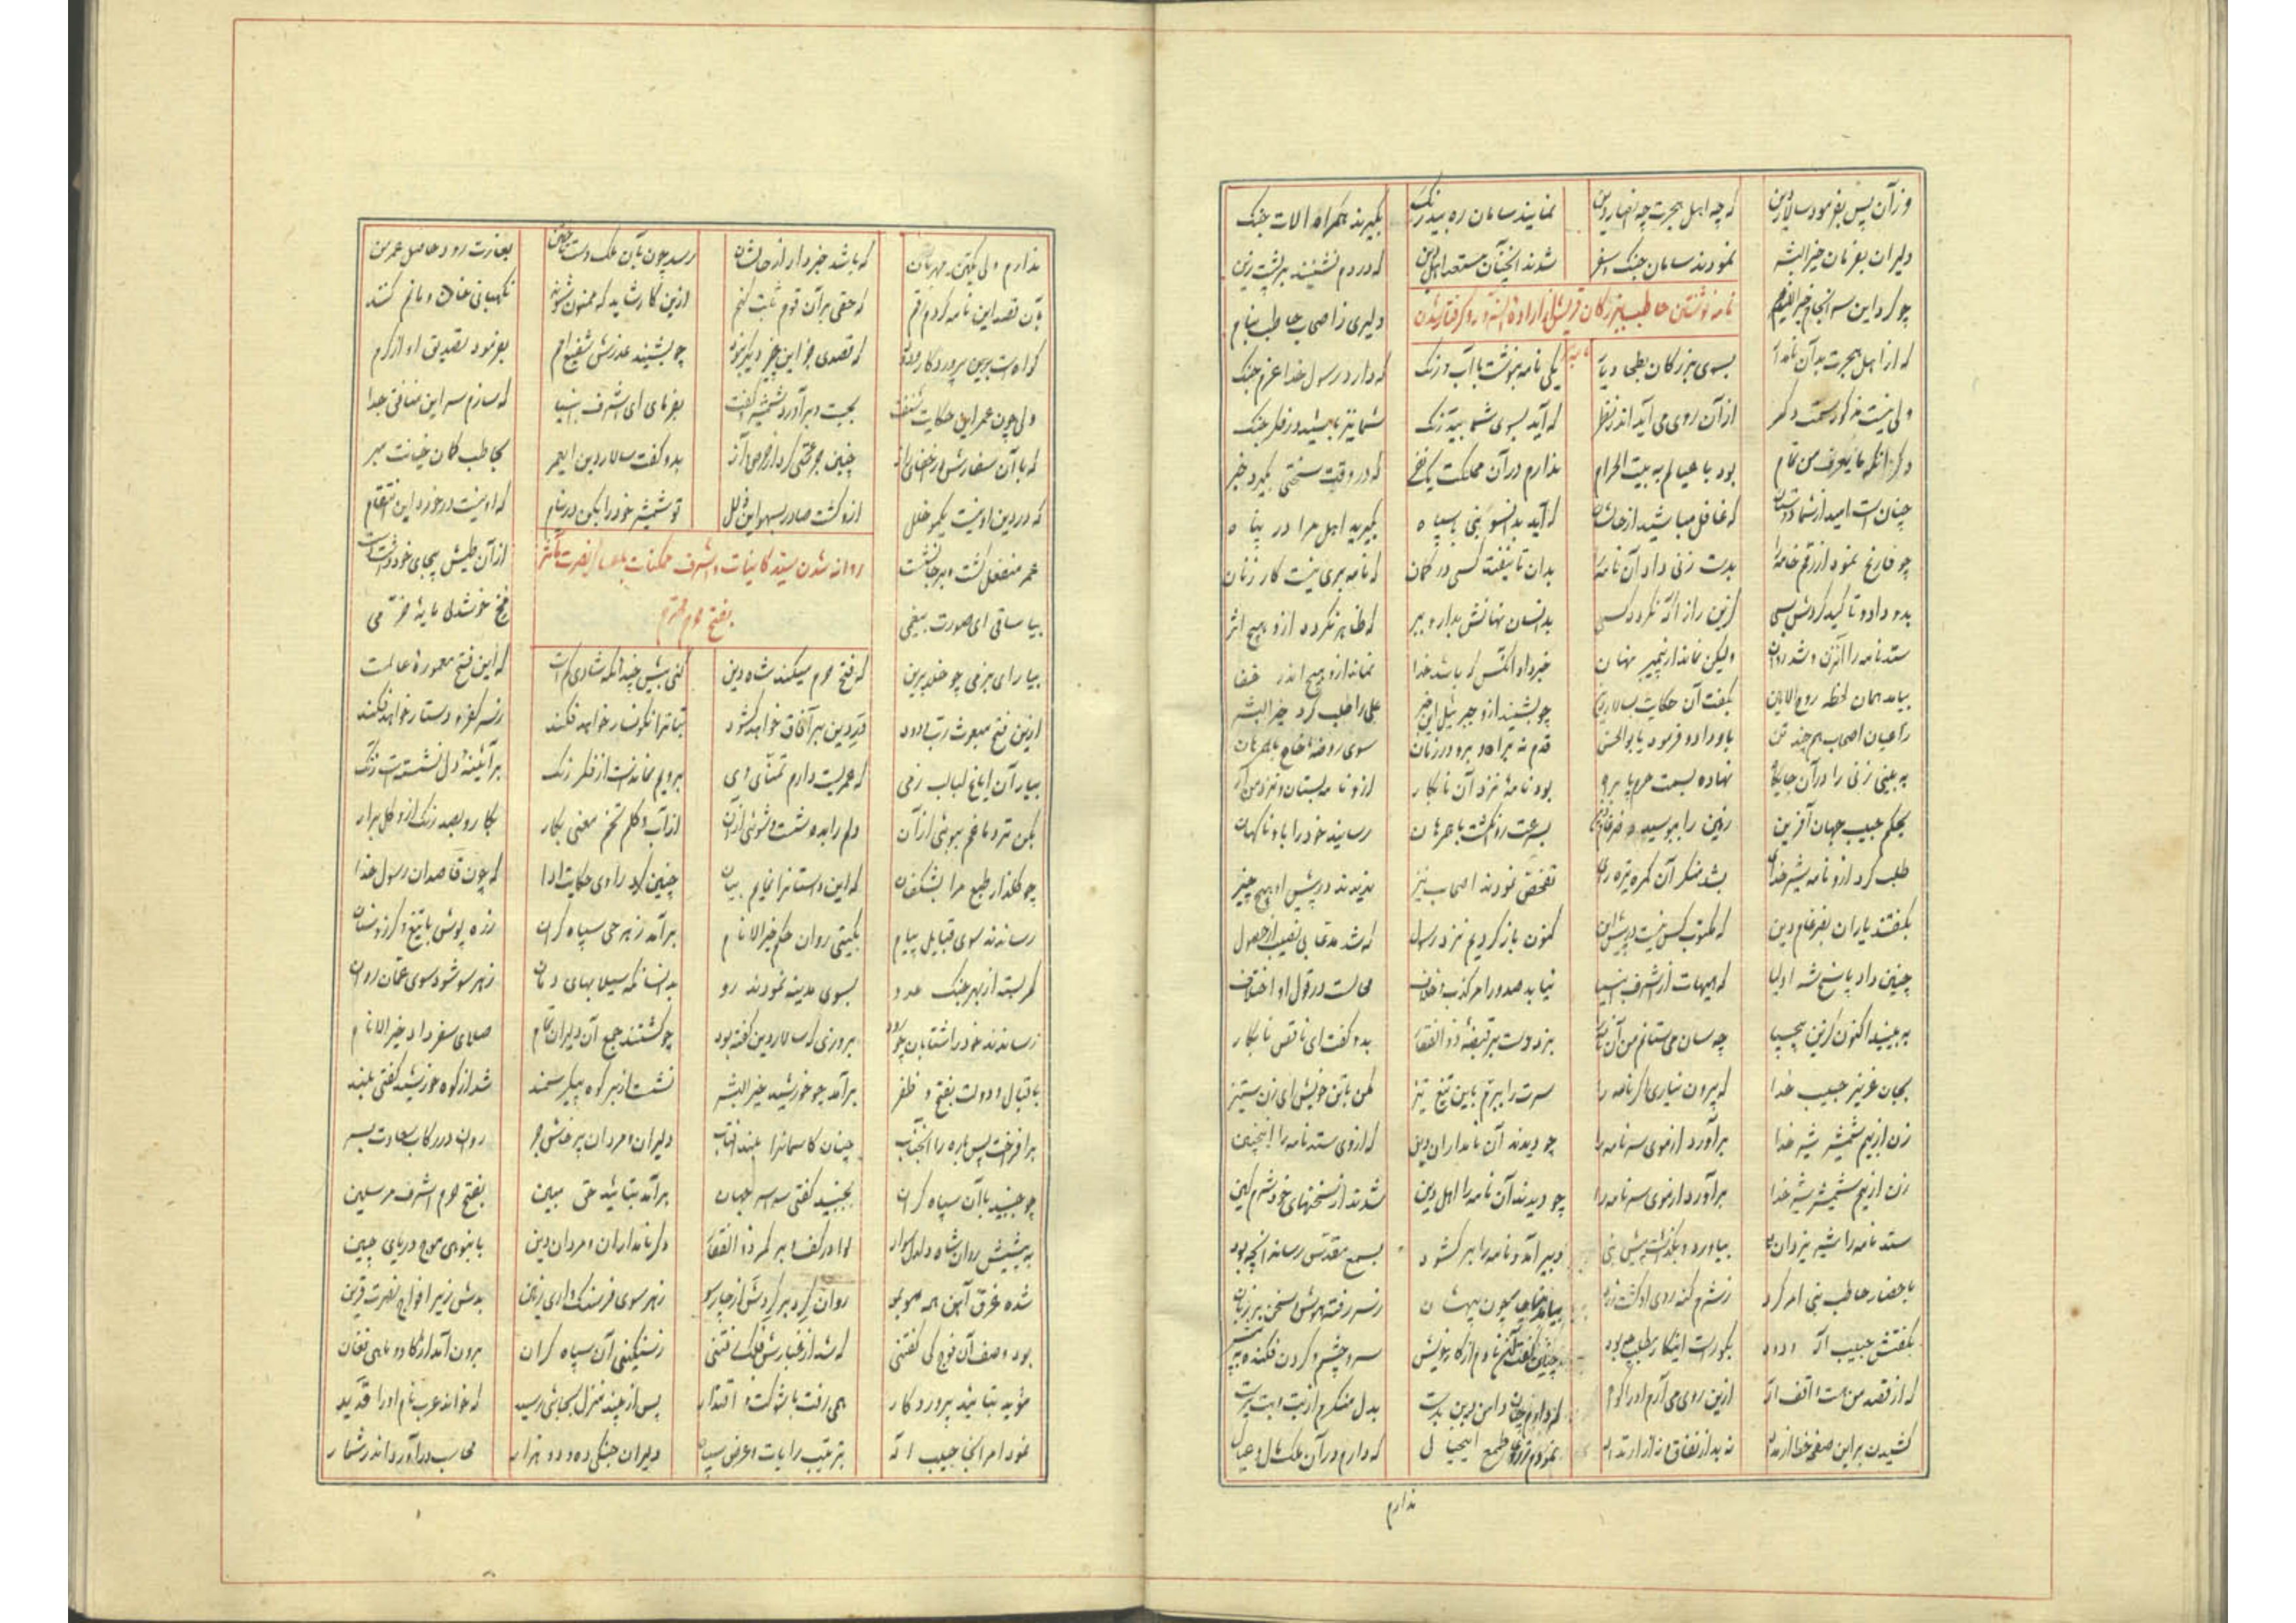 وزآن پس بفرمود سالار دین که چه اهل هجرت چه انصار دین نمایند سامان ره بیدرنگ بگیرند همراه آلات جنک
دلیران بفرمان خیر البشر نمودند سامان جنک و سفر شدند آنچنان مستعد اهل دین که در دم نشینند بر پشت زین
چو کرد این سر انجام خیر الانام دلیری ز اصحاب حاطب بنام
نامه نوشتن حاطب ببزرکان قریش از اراده آنسرور و کرفتار شدن نامه بر
که از اهل هجرت بد آن بسوی بزرکان بطحا دیار یکی نامه بنوشت با آب و رنک که دارد رسول خدا عزم جنک
ولی نیست مذکور سمت دکر از آن روی می آید اندر نظر که آید بسوی شما بیدرنک شما نیز باشید در فکر جنک
دکر آنکه من تمام بود با عیالم به بیت الحرام ندارم در آن مملکت یک نفر که در وقت سختی بگیرد خبر
چنان است امید از شما دوستان که غافل مباشید از حالشان که آید بدانسو نبی با سپاه بگیرید اهل مرا در پناه
چو فارغ نمود از رقم خامه را بدست زنی داد آن نامه را بدان تا نیفتد کسی در کمان که نامه بری نیست کار زنان
بدو داد و تاکید کردش بسی کزین راز آکه نکردد کسی بدانسان نهانش بدار و ببر که ظاهر نکردد ازو هیچ اثر
ستد نامه را آنزن و شد روان ولیکن نماند از پیمبر نهان خبرداد آنکس که باشد خدا نماند ازو هیچ اندر خفا
بیامد همان لحظه روح الامین بگفت آن حکایت بسالار دین چو بشنید ازو جبرئیل این خبر علی را طلب کرد خیر البشر
ز اعیان اصحاب هم چند تن باو داد و فرمود با بوالحسن قدم نه براه و برو در زمان سوی روضه خاخ با همرهان
به بینی زنی را در آن جایکاه نهاده بسمت حرم پا براه بود نامه نزد آن نابکار ازو نامه بستان و نزد من آر
بحکم حبیب جهان آفرین زمین را ببوسید بسرعت روان کشت با همرهان رسانید خود را باو ناکهان
طلب کرد ازو نامه شیر خدا بشد منکر آن کمره تیره رای تفحص نمودند اصحاب نیز ندیدند در پیش او هیچ چیز
بگفتند یاران بضرغام دین که مکتوب کس نیست در پیش این کنون باز کردیم نزد رسول که شد مدعا بی نصیب از حصول
چنین داد پاسخ شه اولیا که هیهات از اشرف انبیا نیابد صدور امر کذب و خلاف محالست در قول او اختلاف
به بینید اکنون کزین بی حیا چه سان می ستانم من آن نامه را بزد دست بر قبضه ذو الفقار بدو کفت ای ناقص نابکار
بجان عزیز حبیب خدا که بیرون نیاری اکر نامه را سرت را ببرم باین تیغ تیز مکن با تن خویش ای زن ستیز
زن از بیم شمشیر شیر خدا برآورد از موی سر نامه را چو دیدند آن نامداران دین که از وی ستد نامه را اینچنین
زن از بیم شمشیر شیر خدا برآورد از موی سر نامه را چو دیدند آن نامه را اهل دین شدند از سخنهای خود شرمکین
ستد نامه را شیر یزدان بیاورد و بکذاشت پیش نبی دبیر آمد و نامه را بر کشود بسمع مقدس رساند آنچه بود
باحضار حاطب نبی امر کرد ز شرم کنه روی او کشت زرد ز سر رفته هوش و سخن بر زبان
بکفتش حبیب اله ودود بکو راست اینکار حاطب چه بود چنین کفت نادم از کار خویش سر و چشم و کردن فکنده به پیش
که از قصد من هست واقف اله ازین روی می آرم او را کواه دامن دین بدست بدل منکرم از بت و بت پرست
کشیدن بر این صفحه خط از مداد نه بد از نفاق و نه از ارتداد نمودم طمع اینخیال که دارم در آن ملک مال و عیال
ندارم
ندارم ولی یکتن مهربان که باشد خبردار از حالشان رسد چون بآن ملک دست بغارت رود حاصل عمر من
بآن قصد این نامه کردم رقم که حقی بر آن قوم ثابت کنم ازین کار شاید که ممنون شوند نکهبانی خان و مانم کنند
کواه است برین پروردکار ودود که قصدی جز این چیز دیگر نبود چو بشنید عذرش شفیع امم بفرمود تصدیق او از کرم
ولی چون عمر این حکایت شنفت بجست و برآورد شمشیر و کفت بفرمای ای اشرف انبیا که سازم سر این منافق جدا
که با آن سفارش چنین جرمی کرد بدو کفت سالار دین ای عمر بحاطب کمان خیانت مبر
که در دین او نیست یکمو خلل ازو کشت صادر بسهو این زلل تو شمشیر خود را بکن در نیام که او نیست در خورد این انتقام
عمر منفعل کشت و بر جا نشست از آن طیش بیجای خود
روانه شدن سید کاینات و اشرف ممکنات با عساکر نصرت مآثر بفتح حرم محترم
بیا ساقی ای صورت بیغمی فرح خوشدلی مایه خرمی
بیارای بزمی چو خلد برین که فتح حرم میکند شاه دین کنی بیش چندانکه شادی کم است که این فتح معموره عالمست
ازین فتح مبعوث رب ودود در دین بر آفاق خواهد کشود بتانرا نکونسار خواهد فکند ز سر کفر را دستار خواهد فکند
بیار آن ایاغ لبالب ز می که عمریست دارم تمنای وی برویم نماندست از فکر رنک بر آئینه دل نشستست زنک
بکن تر دماغم ببوئی از آن دلم را بده شست و شوئی از آن از آب و کلم تخم معنی بکار بکارو بصد رنک ازو کل برار
چو کلذار طبع مرا بشکفان که این داستانرا نمایم بیان چنین کرد راوی حکایت ادا که چون قاصدان رسول خدا
رساندند سوی قبایل پیام بگیتی روان حکم خیر الانام برآمد ز هر حی سپاه کران زره پوش با تیغ و کرز و سنان
کمر بسته از بهر جنک عدو بسوی مدینه نمودند رو بدانسانکه سیلابهای دمان ز هر سو شود سوی عمان روان
رساندند خود را شتابان بروزی که سالار دین کفته بود چو کشتند جمع آن دلیران تمام صلای سفر داد خیر الانام
باقبال و دولت بفتح و ظفر برآمد چو خورشید خیر البشر نشست از بر کوه پیکر سمند شد از کوه خورشید کفتی بلند
برافراخت پس باره را آنجناب چنان کاسمانرا بلند آفتاب دلیران و مردان پرخاشجو روان در رکاب سعادت بسر
چو جنبید با آن سپاه کران بجنبید کفتی سراسر جهان برآمد بتائید حق مبین بفتح حرم اشرف مرسلین
به پیشش روان شاه دلدل سوار لوا در کف و بر کمر ذو الفقار دکر نامداران و مردان دین بانبوهی موج دریای چین
شده غرق آهن همه مو بمو روان کرد بر کردش از چار سو ز هر سوی فرسنک واری زمین بدش زیر افواج نصرت قرین
بود وصف آن فوج کی کفتنی که شد از غبارش فلک ز سنکینی آن سپاه کران برون آمد از کاو و ماهی فغان
مؤید بتائید پروردکار همی رفت با شوکت و اقتدار پس از چند منزل بجائی رسید که خواند عرب نام او را قدید
نمود امر آنجا حبیب اله بترتیب رایات و عرض سپاه دلیران جنکی ده و دو هزار محاسب درآورد اندر شمار